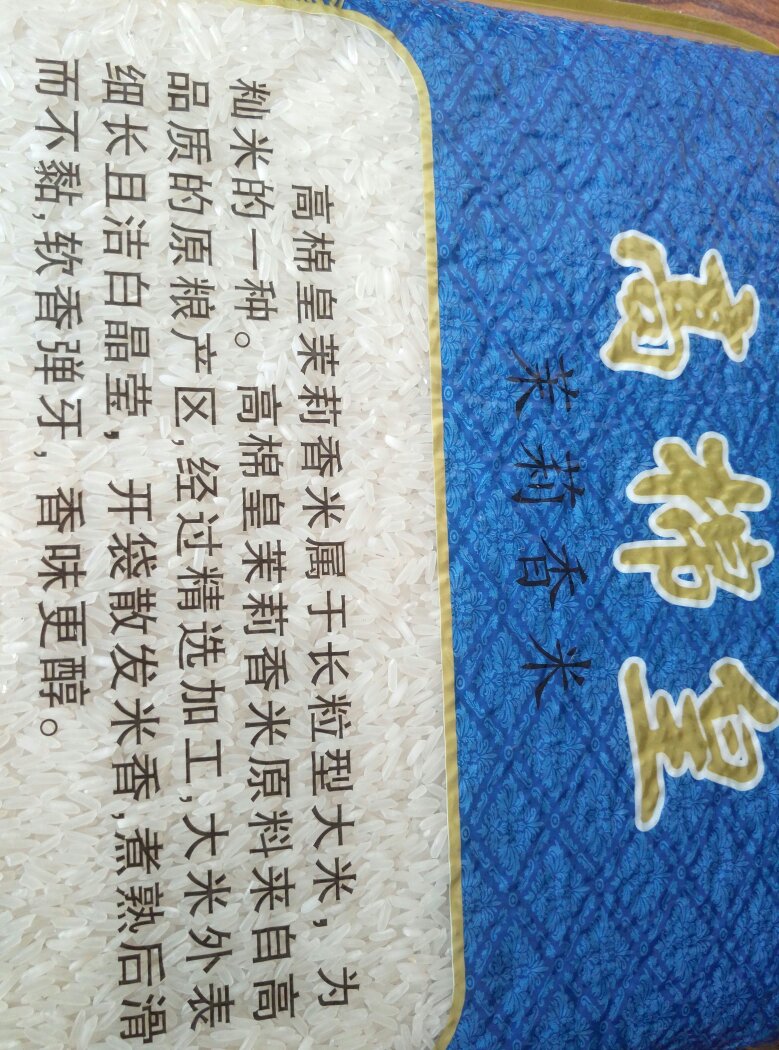 高棉皇
茉莉香米
高棉皇茉莉香米属于长粒型大米，为
籼米的一种。高棉皇茉莉香米原料来自高
品质的原粮产区,经过精选加工,大米外表
细长且洁白晶莹，开袋散发米香,煮熟后滑
而不黏,软香弹牙，香味更醇。